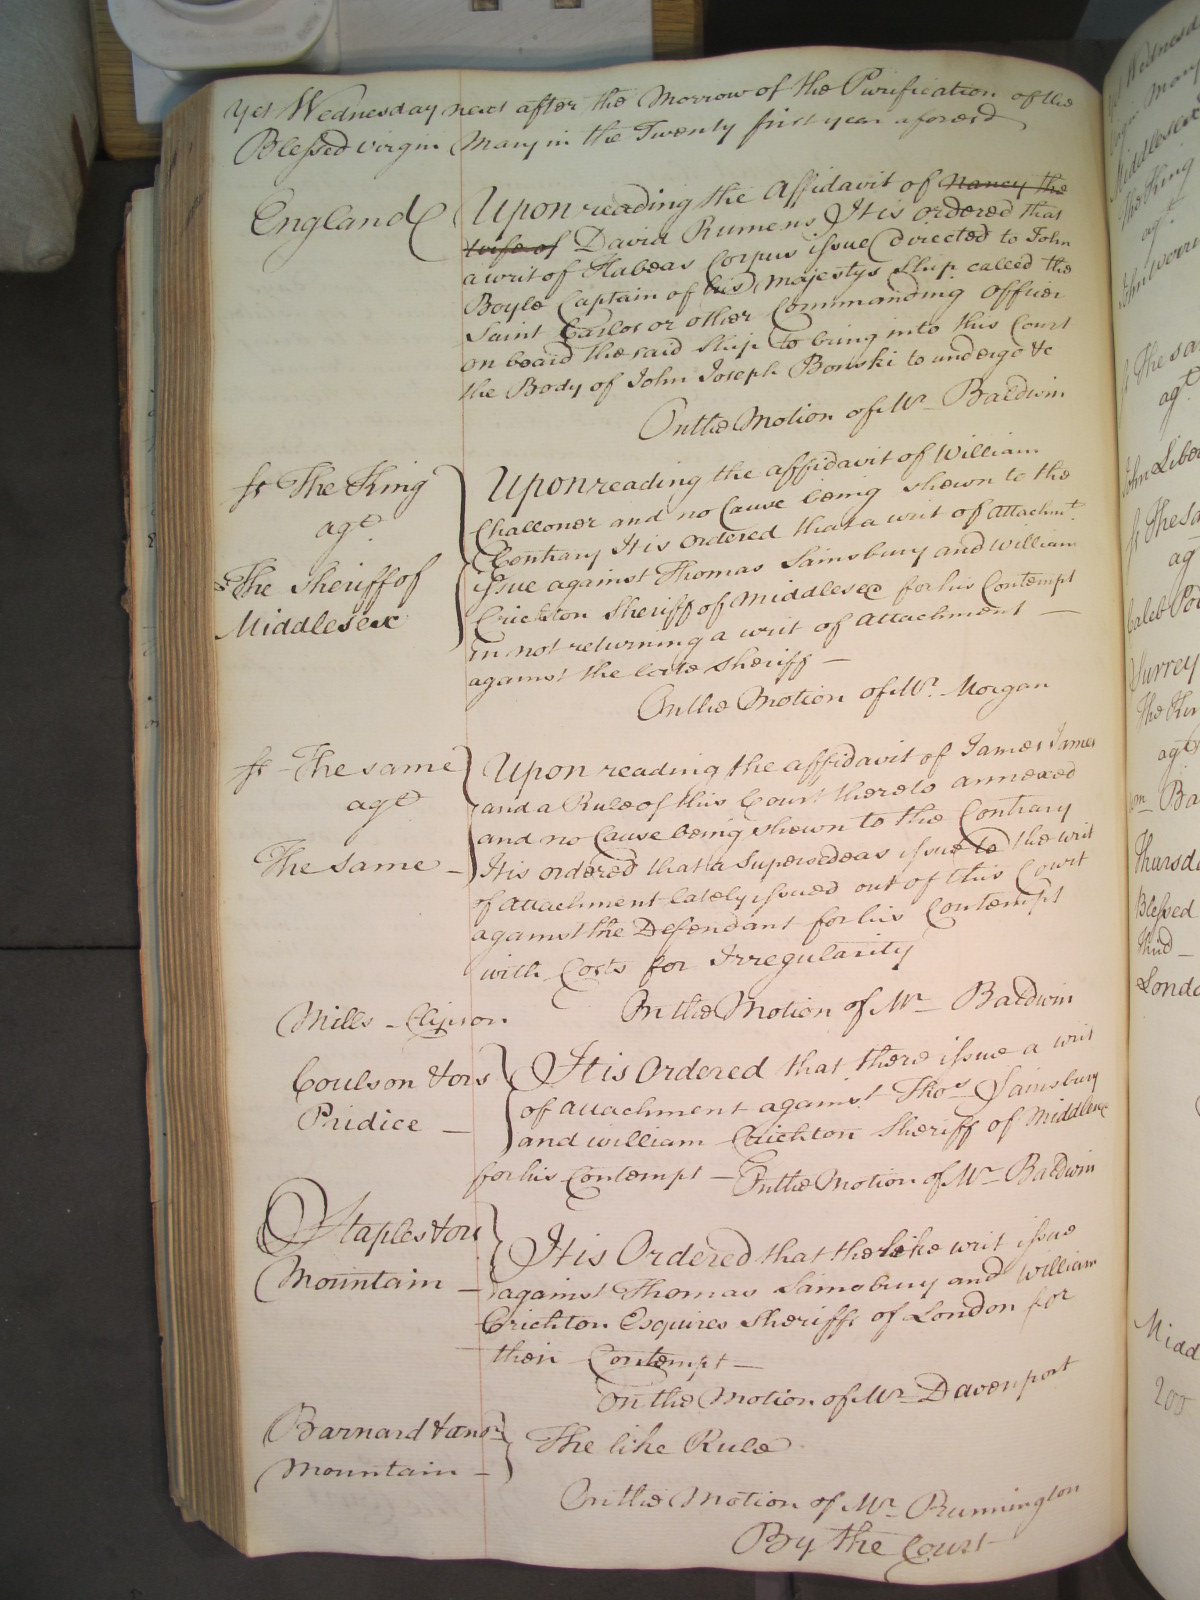 Yet Wednesday next after the Morrow of the Purification of the
Blessed virgin Mary in the Twenty first year aforesd
England Upon reading the Affidavit of Nancy the
wife of David Rumens It is ordered that
a writ of Habeas Corpus issue directed to John
Boyle Captain of his Majestys Ship called the
Saint Carlos or other Commanding Officer
on board the said Ship to bring into this Court
the Body of John Joseph Bonski to undergo &c
On the Motion of Mr Baldwin
The King
agt
The Sheriff of
Middlesex
Upon reading the affidavit of William
Challoner and no Cause being shewn to the
Contrary It is ordered that a writ of Attachmt
issue against Thomas Sainsbury and William
Crichton Sheriff of Middlesex for his Contempt
in not returning a writ of attachment
against the late Sheriff
On the Motion of Mr Morgan
The same
agt
The same
Upon reading the affidavit of James James
and a Rule of this Court thereto annexed
and no Cause being shewn to the Contrary
It is ordered that a Supersedeas issue to the writ
of attachment lately issued out of this Court
against the Defendant for his Contempt
with Costs for Irregularity
On the Motion of Mr Baldwin
Mills - Clipson
Coulson & ors
Pridice
It is Ordered that there issue a writ
of attachment against Thos Sainsbury
and william Crichton Sheriff of Middlesex
for his Contempt - On the Motion of Mr Baldwin
Staples & ors
Mountain
It is Ordered that the like writ issue
against Thomas Sainsbury and William
Crichton Esquires Sheriffs of London for
their Contempt
On the Motion of Mr Davenport
Barnard & anr
Mountain
The like Rule
On the Motion of Mr Runnington
By the Court
Surrey
200